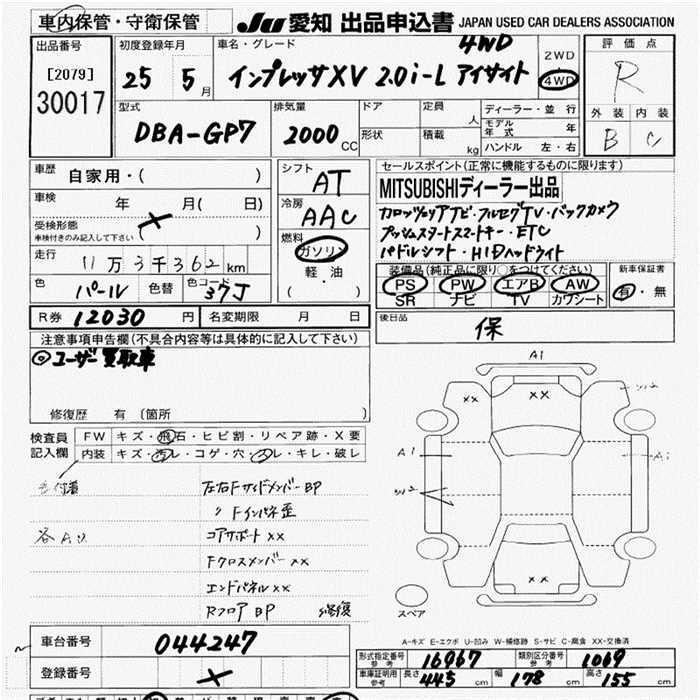 車内保管・守衛保管 JU 愛知 出品申込書 JAPAN USED CAR DEALERS ASSOCIATION
出品番号 初度登録年月 車名・グレード 4WD 2WD 評価点
[2079] 25 5月 インプレッサXV 2.0i-L アイサイト 4WD R
30017 型式 排気量 ドア 定員 人 ディーラー・並行 外装 内装
DBA-GP7 2000CC 形状 積載 kg モデル年式 年 B C
ハンドル 左・右
車歴 自家用・( ) シフト AT セールスポイント(正常に機能するものに限ります)
車検 年 月( 日) 冷房 AAC MITSUBISHIディーラー出品
受検形態 ( ) カロッツェリアナビ・フルセグTV・バックカメラ
車検付きのみ記入して下さい 燃料 プッシュスタートスマートキー・ETC
走行 11万3千362km ガソリン パドルシフト・HIDヘッドライト
色 パール 色替 色コード 37J 軽・油 装備品(純正品に限り○をつけてください) 新車保証書
( ・ ) PS PW エアB AW 有・無
SR ナビ TV カワシート
R券 12030円 名変期限 月 日 後日品 保
注意事項申告欄(不具合内容等は具体的に記入して下さい)
◎ユーザー買取車
修復歴 有 (箇所 )
検査員 FW キズ・飛石・ヒビ割・リペア跡・X要
記入欄 内装 キズ・汚レ・コゲ・穴・スレ・キレ・破レ
左右FサイドメンバーBP
〃 Fインパネ歪
各AU コアサポートXX
FクロスメンバーXX
エンドパネルXX
RフロアBP 修復
A1
XX XX
A1
XX
スペア
A-キズ E-エクボ U-凹み W-補修跡 S-サビ C-腐食 XX-交換済
車台番号 044247 形式指定番号 参考 16967 類別区分番号 参考 1069
登録番号 X 車庫証明用 参考 長さ 445cm 幅 178cm 高さ 155cm